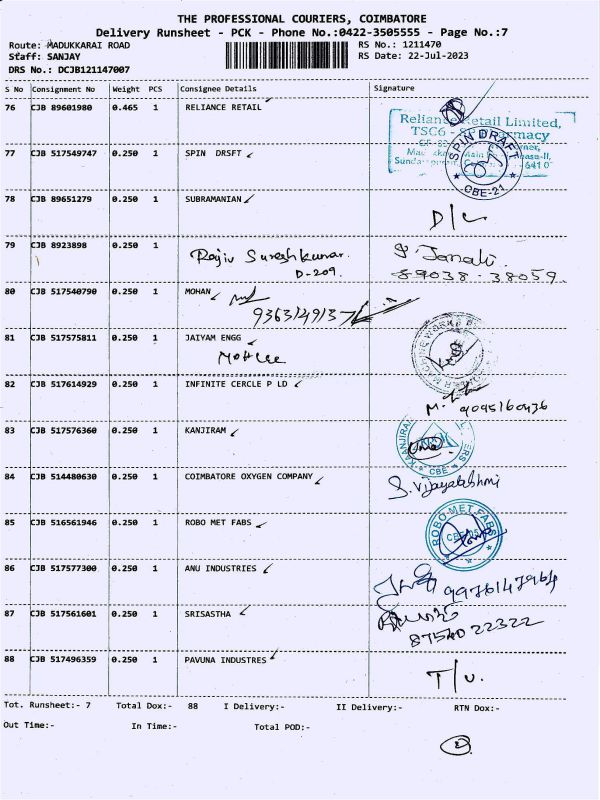 THE PROFESSIONAL COURIERS, COIMBATORE
Delivery Runsheet - PCK - Phone No.:0422-3505555 - Page No.:7
Route: MADUKKARAI ROAD RS No.: 1211470
Staff: SANJAY RS Date: 22-Jul-2023
DRS No.: DCJB121147007
S No Consignment No Weight PCS Consignee Details Signature
76 CJB 89601980 0.465 1 RELIANCE RETAIL
Reliance Retail Limited,
TSC6
77 CJB 517549747 0.250 1 SPIN DRSFT
SPIN DRAFT
CBE-21
78 CJB 89651279 0.250 1 SUBRAMANIAN D/L
79 CJB 8923898 0.250 1
Rajiv Sureshkumar
D-209.
89038-38059
80 CJB 517540790 0.250 1 MOHAN
9363149137
81 CJB 517575811 0.250 1 JAIYAM ENGG
82 CJB 517614929 0.250 1 INFINITE CERCLE P LD
9095160436
83 CJB 517576360 0.250 1 KANJIRAM
CBE
84 CJB 514480630 0.250 1 COIMBATORE OXYGEN COMPANY
S. Vijayalakshmi
85 CJB 516561946 0.250 1 ROBO MET FABS
ROBO-MET-FABS
86 CJB 517577300 0.250 1 ANU INDUSTRIES
9976147964
87 CJB 517561601 0.250 1 SRISASTHA
8754022322
88 CJB 517496359 0.250 1 PAVUNA INDUSTRES
Tot. Runsheet:- 7 Total Dox:- 88 I Delivery:- II Delivery:- RTN Dox:-
Out Time:- In Time:- Total POD:-